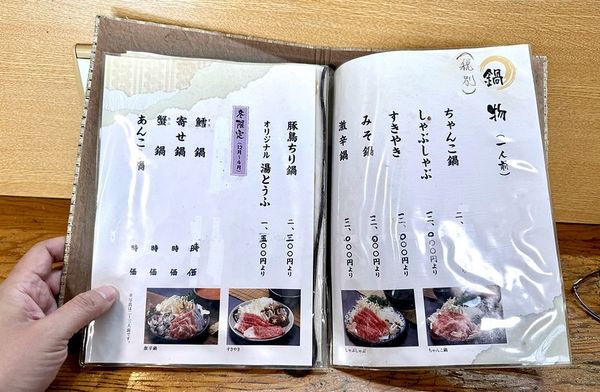 鍋物（一人前）
（税別）
ちゃんこ鍋 二、
しゃぶしゃぶ 二、〇〇〇円より
すきやき 二、〇〇〇円より
みそ鍋 二、〇〇〇円より
激辛鍋 二、〇〇〇円より
豚鳥ちり鍋 二、三〇〇円より
オリジナル 湯どうふ 一、五〇〇円より
冬限定（12月～
鱈鍋 時価
寄せ鍋 時価
蟹鍋 時価
あんこ 鍋 時価
しゃぶしゃぶ
ちゃんこ鍋
激辛鍋
すきやき
※写真は二～三人前です。